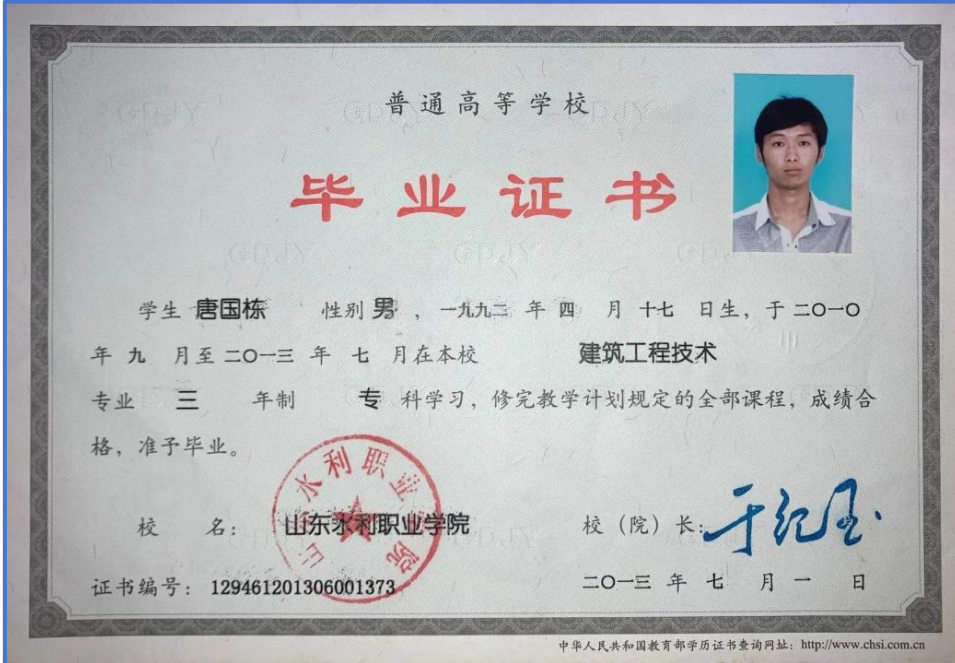 普通高等学校
毕业证书
学生 唐国栋 性别 男 ，一九九二 年 四 月 十七 日生，于 二〇一〇
年 九 月至 二〇一三 年 七 月在本校 建筑工程技术
专业 三 年制 专 科学习，修完教学计划规定的全部课程，成绩合
格，准予毕业。
山东水利职业学院
校 名： 山东水利职业学院
校（院）长： 于纪玉
证书编号： 129461201306001373
二〇一三 年 七 月 一 日
中华人民共和国教育部学历证书查询网址：http://www.chsi.com.cn